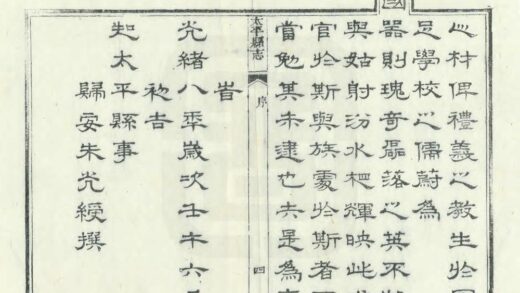 之材俾禮義之教生於
足學校之儒蔚為
器則瑰奇磊落之英不
與姑射汾水相輝映此
官於斯與族處於斯者
當勉其未逮也夫是為
太平縣志 序 四
旹
光緒八年歲次壬午六
初吉
知太平縣事
歸安朱光綬撰